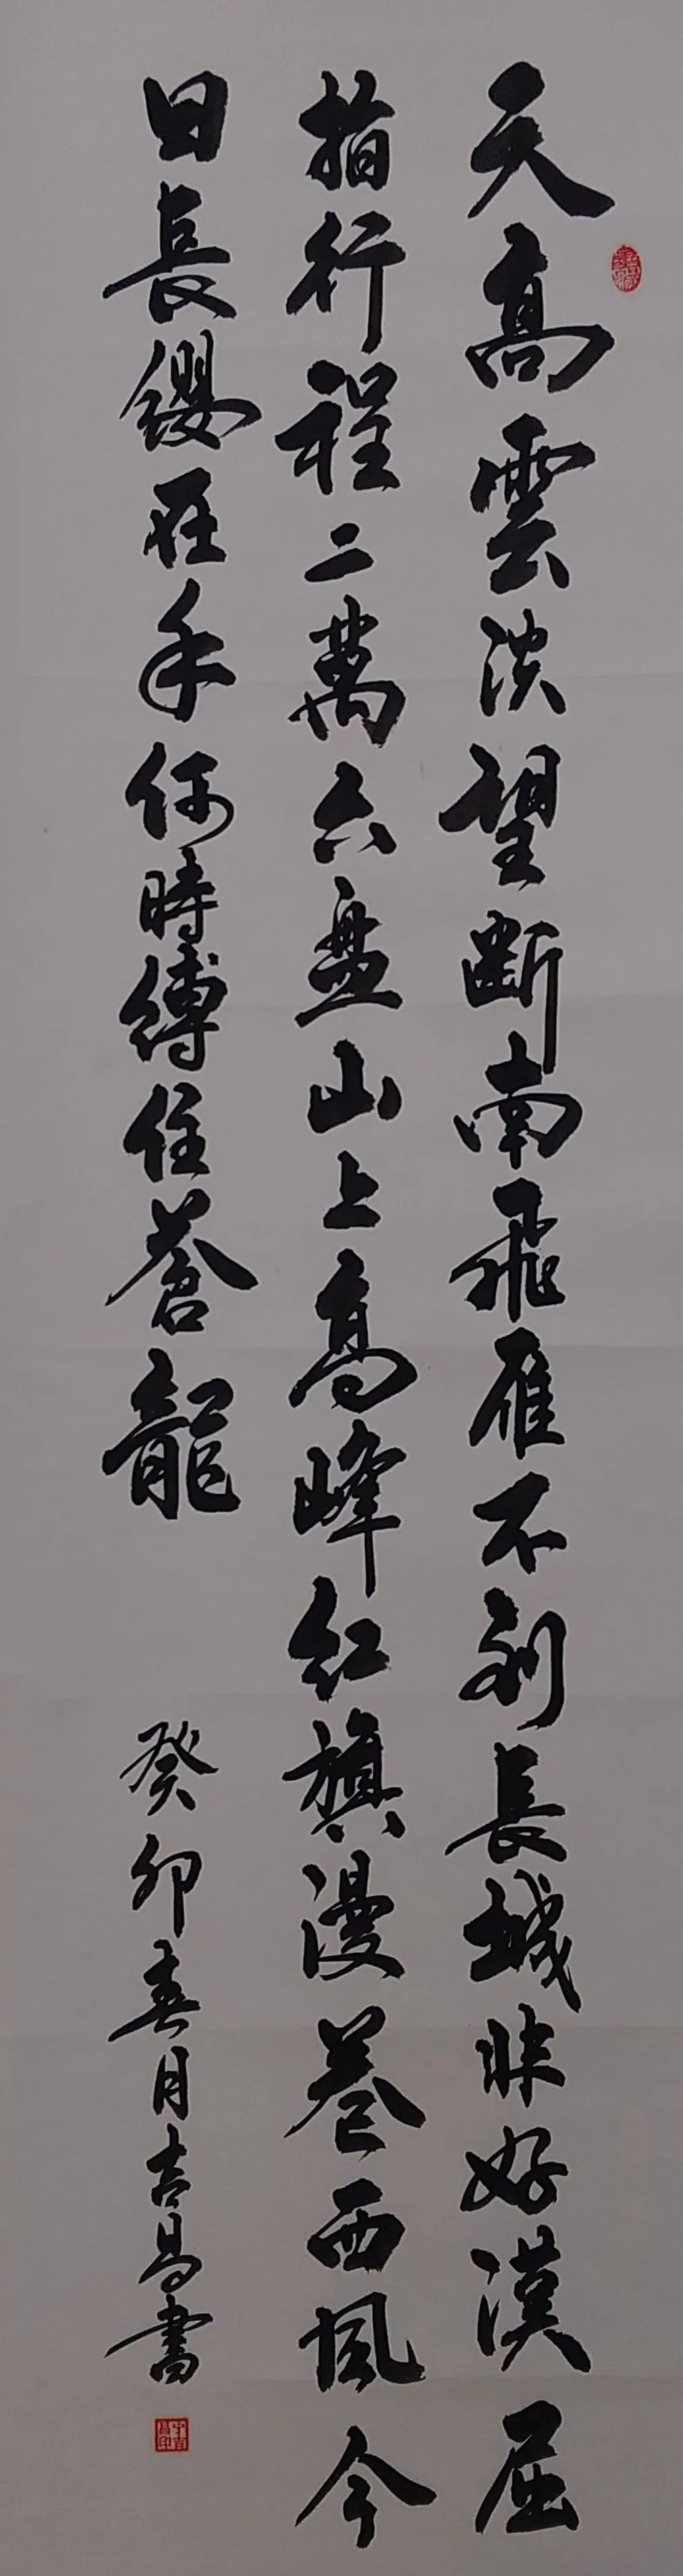 天高雲淡望斷南飛雁不到長城非好漢屈
指行程二萬六盤山上高峰紅旗漫卷西風今
日長纓在手何時縛住蒼龍
癸卯春月吉昌書